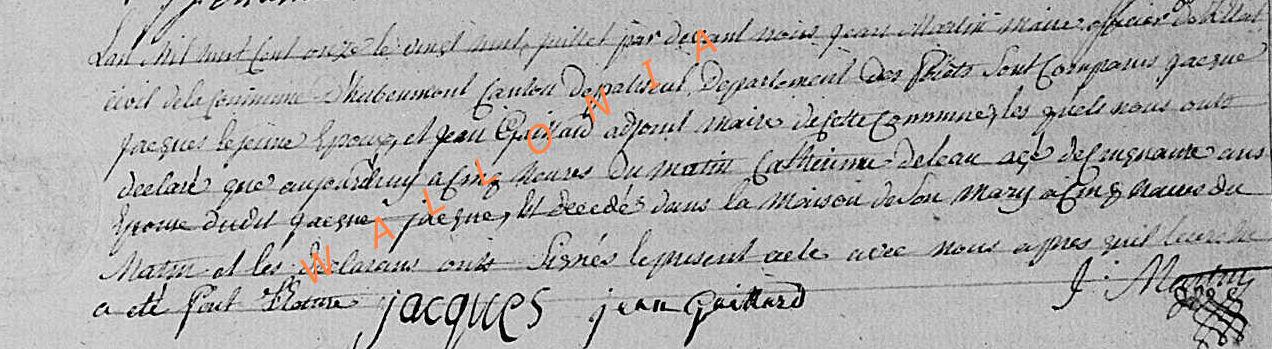 Lan Mil huit Cent onze le vingt huit juillet par devant nous jean Martin maire officier de l'Etat
civil de la Commune d'herbeumont Canton de paliseul Departement des forets Sont Comparus jacque
jacques le jeune Epoux, et jean Gaillard adjoint maire de cette Commune, les quels nous onts
declaré que aujourdhuy a Cinq heures du matin Catherinne deleau agé de Cinquante ans
Epouse dudit jacque jacque, Est decedé dans la maison de Son Mary a Cinq heures du
Matin et les declarans onts Signés le present acte avec nous apres quil leure
a eté fait
jacques jean Gaillard J. Martin
WALLONIA